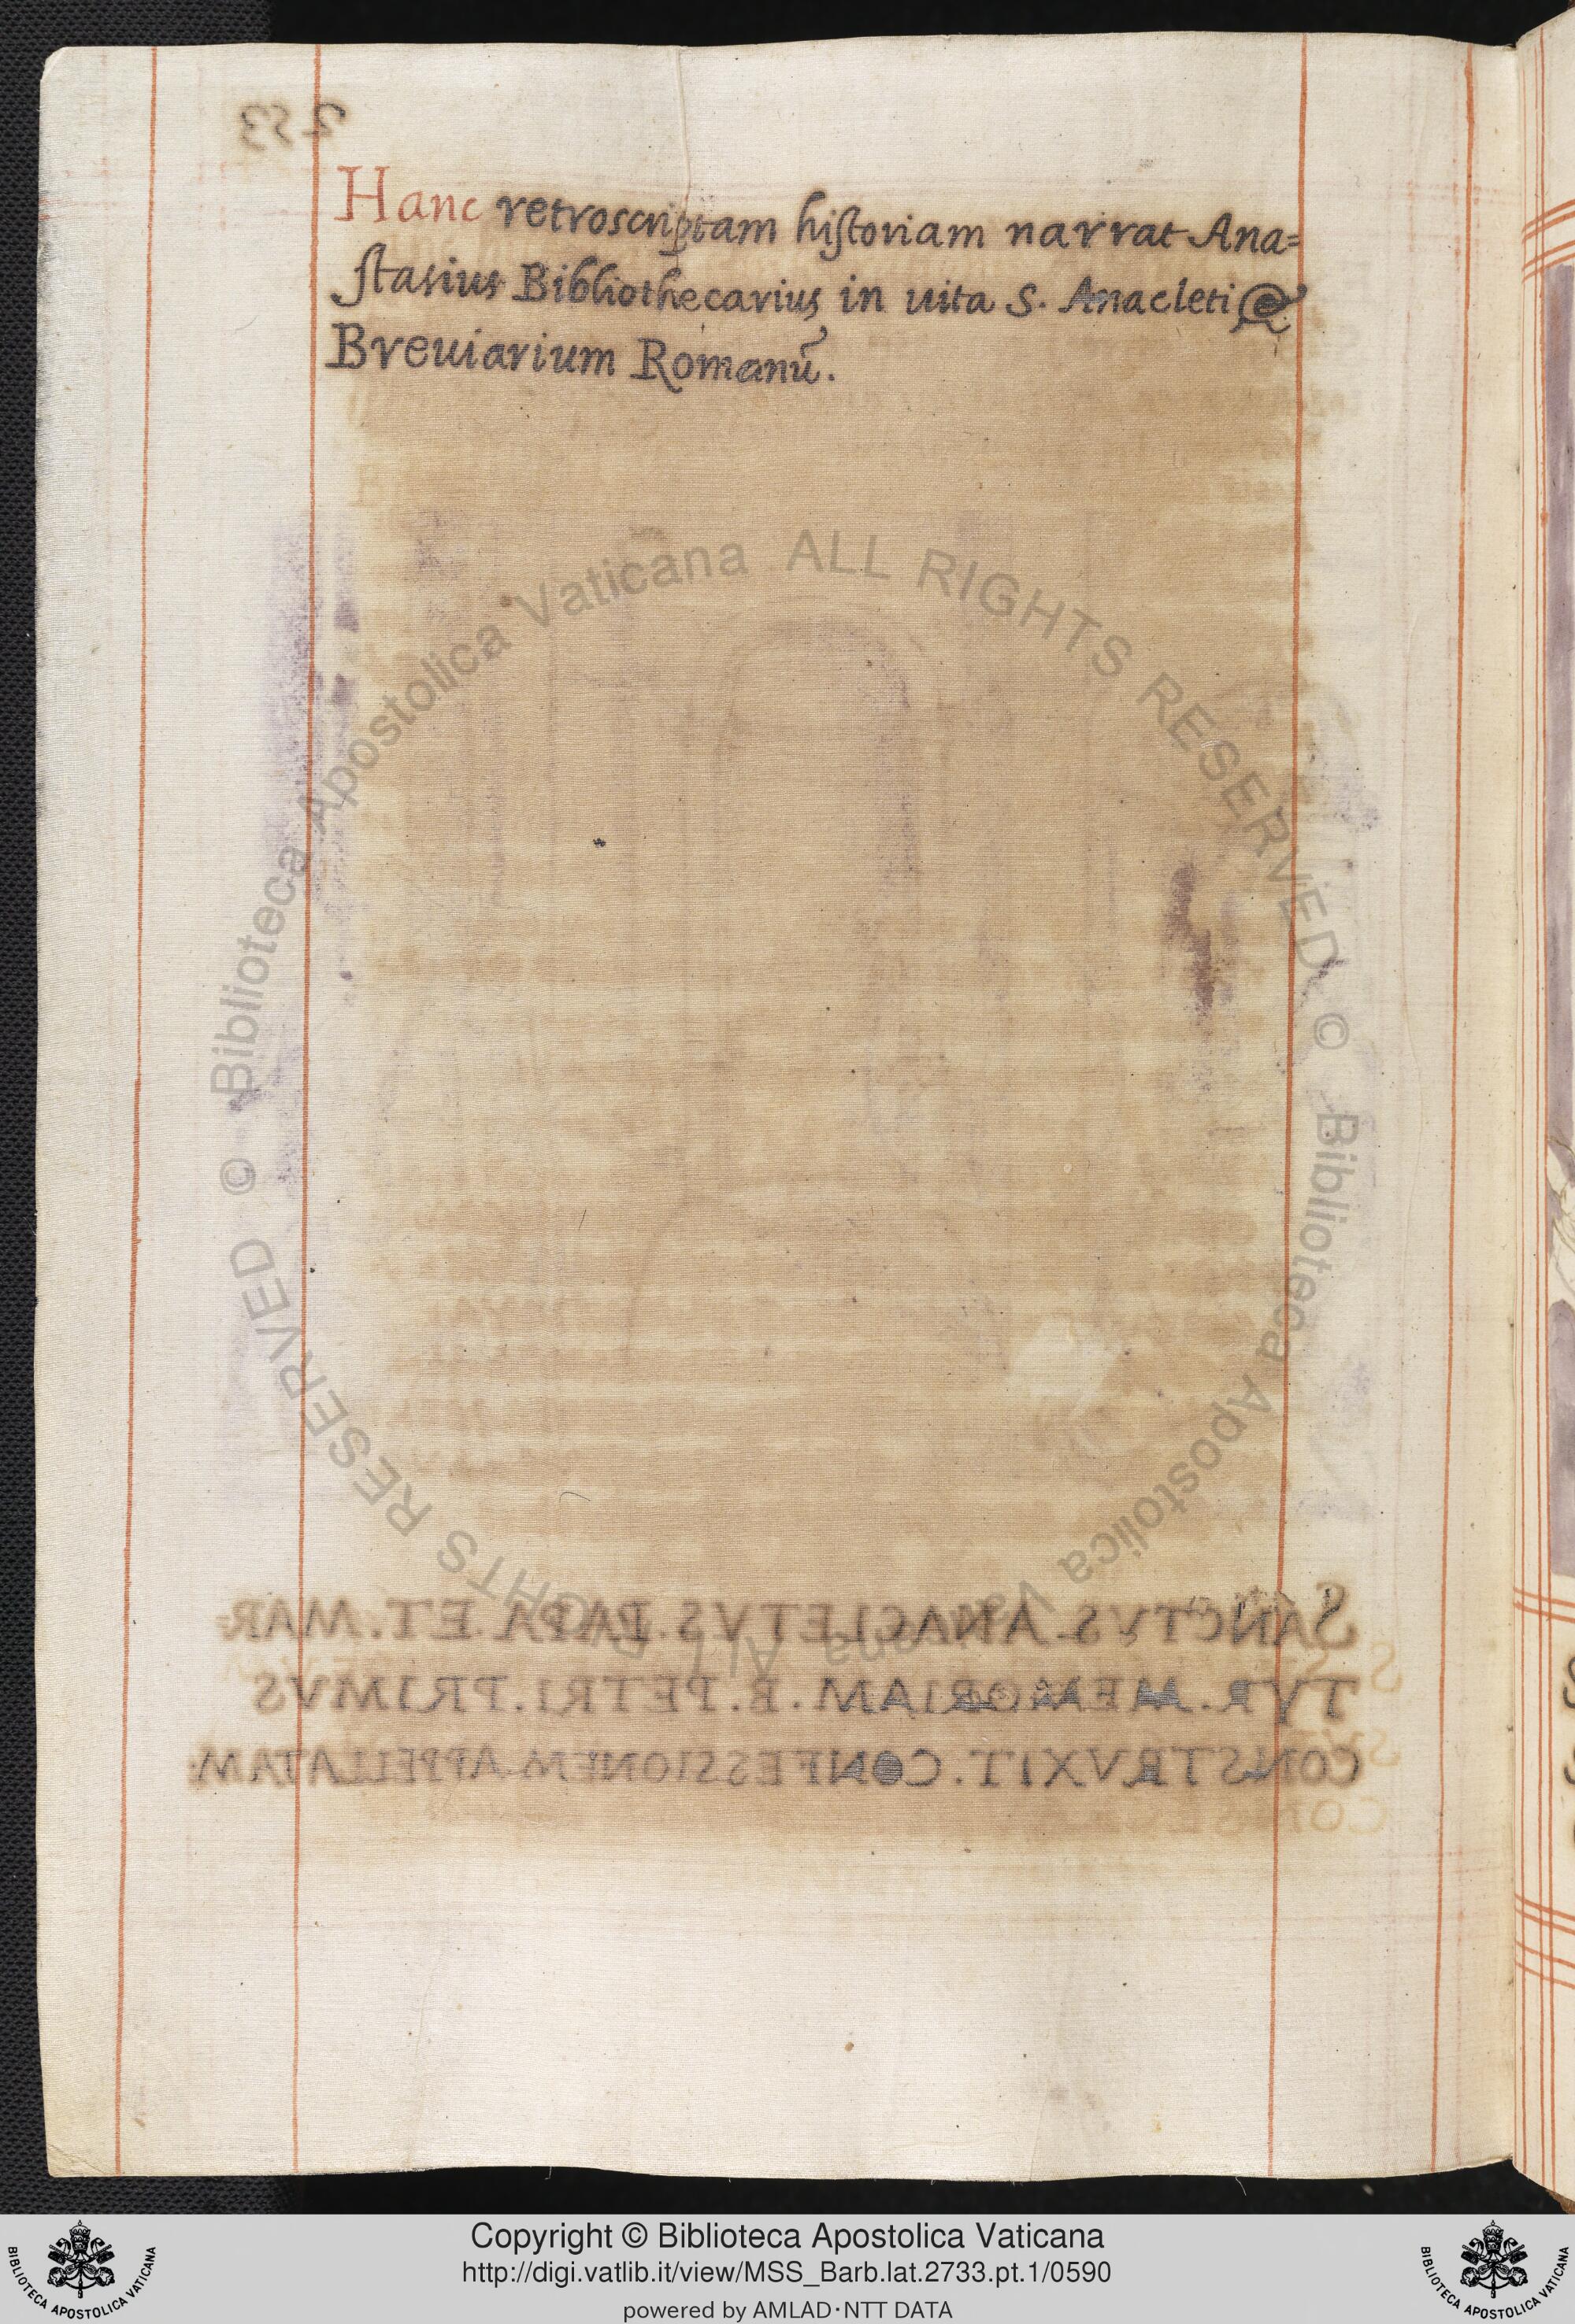 253
Hanc retroscriptam historiam narrat Ana=
stasius Bibliothecarius in uita S. Anacleti &
Breuiarium Romanū.
SANCTVS. ANACLETVS. PAPA. ET. MAR=
TYR. MEMORIAM. B. PETRI. PRIMVS
CONSTRVXIT. CONFESSIONEM APPELLATAM.
© Biblioteca Apostolica Vaticana ALL RIGHTS RESERVED © Biblioteca Apostolica Vaticana ALL RIGHTS RESERVED
Copyright © Biblioteca Apostolica Vaticana
http://digi.vatlib.it/view/MSS_Barb.lat.2733.pt.1/0590
powered by AMLAD·NTT DATA
BIBLIOTECA APOSTOLICA VATICANA
BIBLIOTECA APOSTOLICA VATICANA